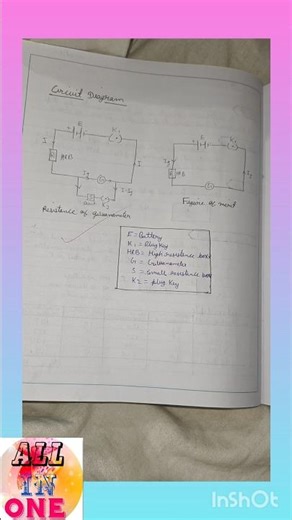 Circuit Diagram
E
K₁
I
HRB
I
Ig
G
I-Ig
S
K₂
Resistance of galvanometer
E
K₁
Ig
HRB
Ig
G
Figure of merit
E = Battery
K₁ = Plug Key
HRB = High resistance box
G = Galvanometer
S = Small resistance box
K2 = Plug Key
ALL
IN
ONE
InShOt